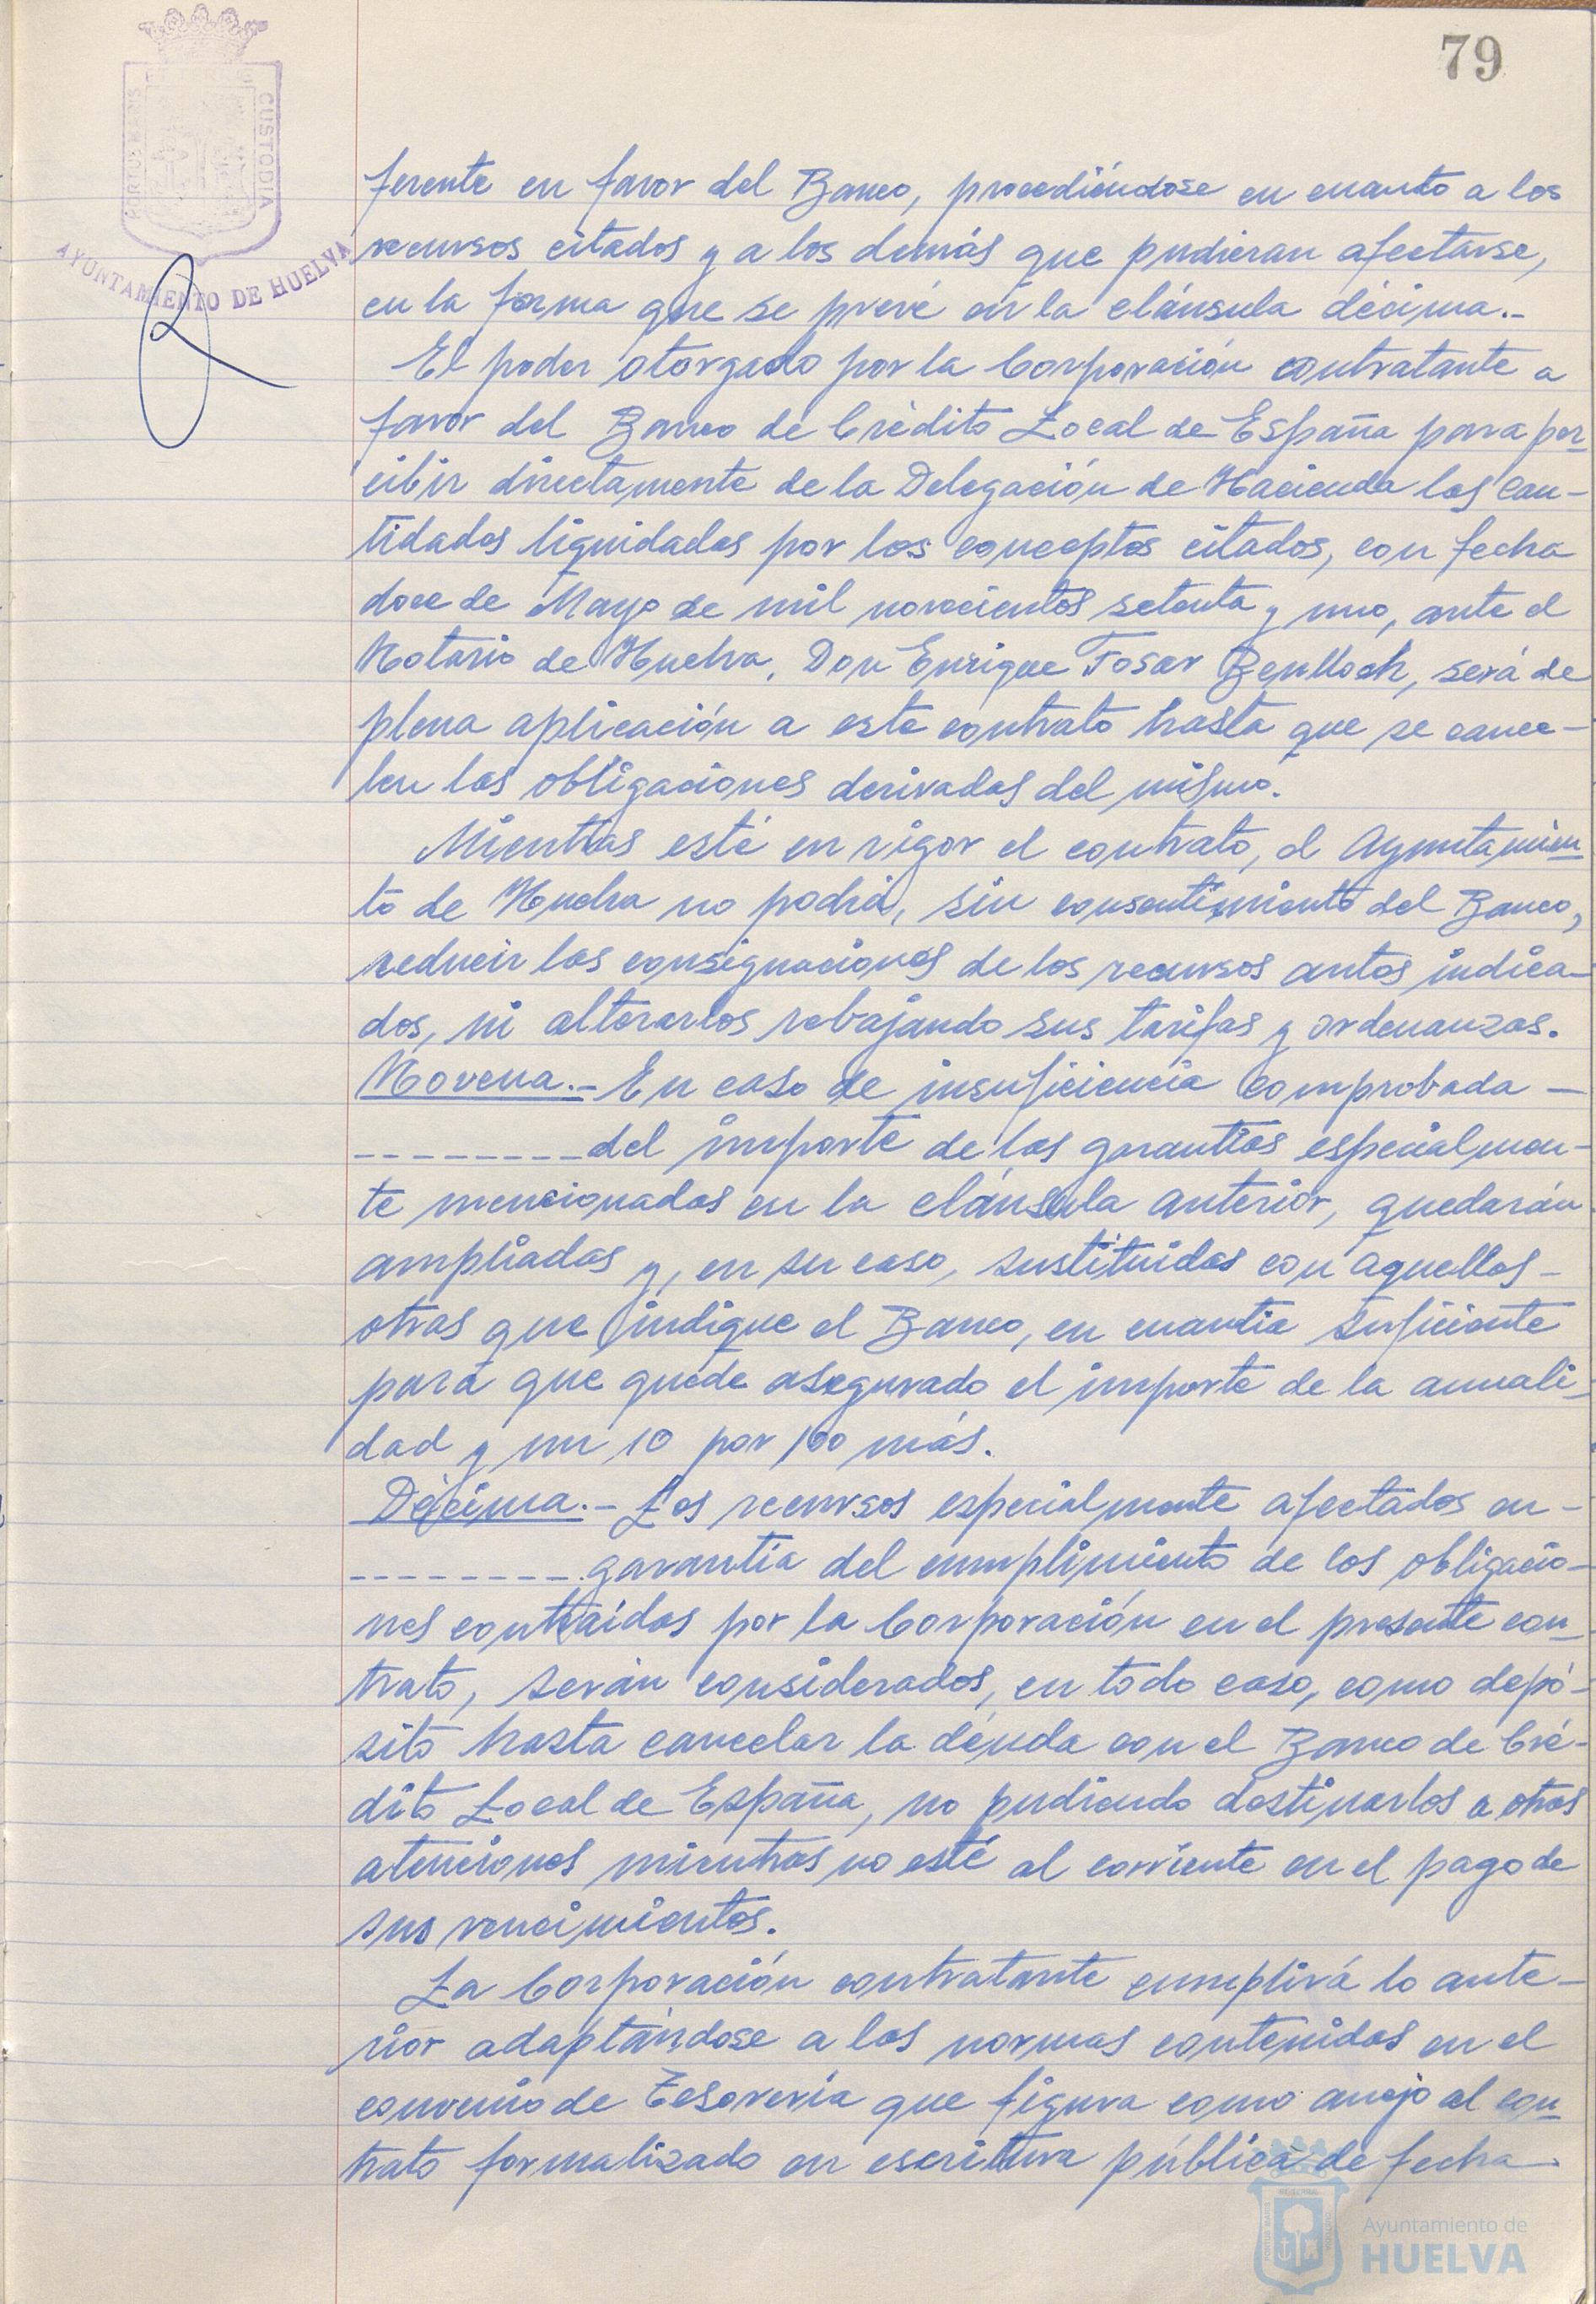 79
PORTUS MARIS ET TERRAE CUSTODIA
AYUNTAMIENTO DE HUELVA
ferente en favor del Banco, procediéndose en cuanto a los
recursos citados y a los demás que pudieran afectarse,
en la forma que se prevé en la cláusula décima.-
El poder otorgado por la Corporación contratante a
favor del Banco de Crédito Local de España para per-
cibir directamente de la Delegación de Hacienda las can-
tidades liquidadas por los conceptos citados, con fecha
doce de Mayo de mil novecientos setenta y uno, ante el
Notario de Huelva, Don Enrique Tosar Benlloch, será de
plena aplicación a este contrato hasta que se cance-
len las obligaciones derivadas del mismo.
Mientras esté en vigor el contrato, el Ayuntamien-
to de Huelva no podrá, sin consentimiento del Banco,
reducir las consignaciones de los recursos antes indica-
dos, ni alterarlos rebajando sus tarifas y ordenanzas.
Novena.- En caso de insuficiencia comprobada -
-------- del importe de las garantías especialmen-
te mencionadas en la cláusula anterior, quedarán
ampliadas y, en su caso, sustituidas con aquellas -
otras que indique el Banco, en cuantía suficiente
para que quede asegurado el importe de la anuali-
dad y un 10 por 100 más.
Décima.- Los recursos especialmente afectados en -
-------- garantía del cumplimiento de las obligacio-
nes contraídas por la Corporación en el presente con-
trato, serán considerados, en todo caso, como depó-
sito hasta cancelar la deuda con el Banco de Cré-
dito Local de España, no pudiendo destinarlos a otras
atenciones mientras no esté al corriente en el pago de
sus vencimientos.
La Corporación contratante cumplirá lo ante-
rior adaptándose a las normas contenidas en el
convenio de Tesorería que figura como anejo al con-
trato formalizado en escritura pública de fecha
Ayuntamiento de
HUELVA